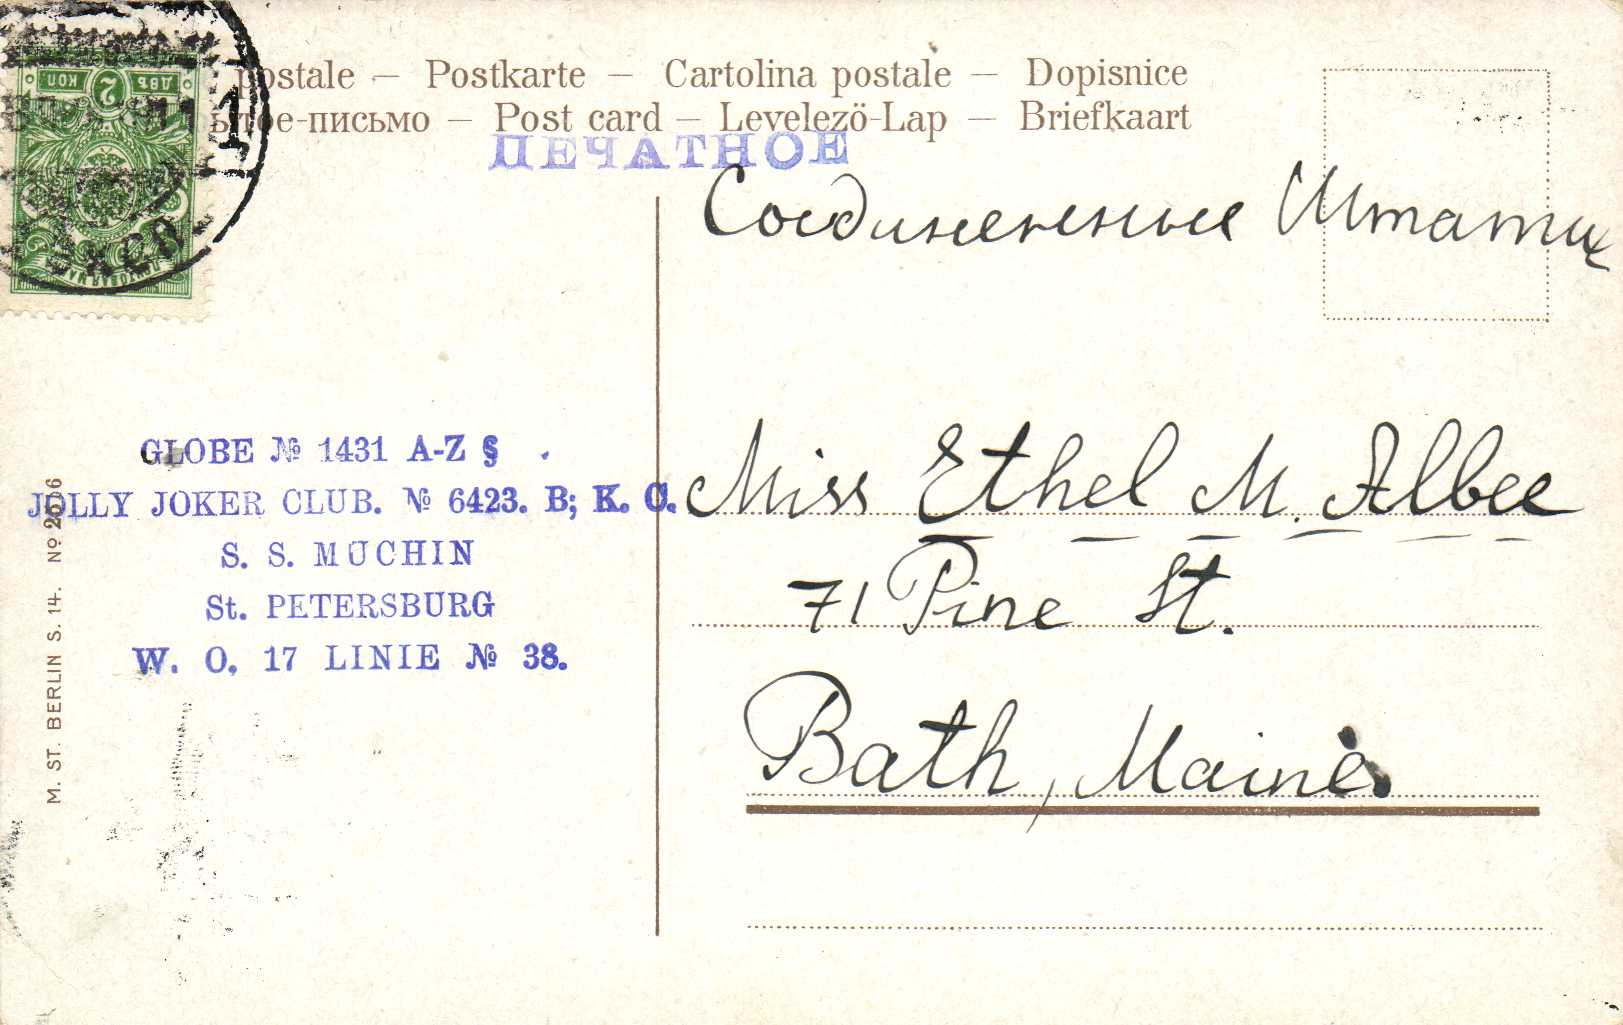 postale – Postkarte – Cartolina postale – Dopisnice
ытое-письмо – Post card – Levelezö-Lap – Briefkaart
ПЕЧАТНОЕ
Соединенные Штаты
ДВѢ 2 КОП
GLOBE № 1431 A-Z §
JOLLY JOKER CLUB. № 6423. B; K. C.
S. S. MUCHIN
St. PETERSBURG
W. O. 17 LINIE № 38.
M. ST. BERLIN S. 14. № 2006
Miss Ethel M. Albee
71 Pine St.
Bath, Maine.